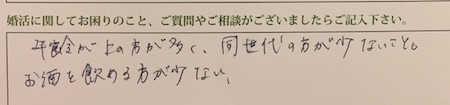 婚活に関してお困りのこと、ご質問やご相談がございましたらご記入下さい。
年齢が上の方が多く、同世代の方が少ないこと。
お酒を飲める方が少ない。